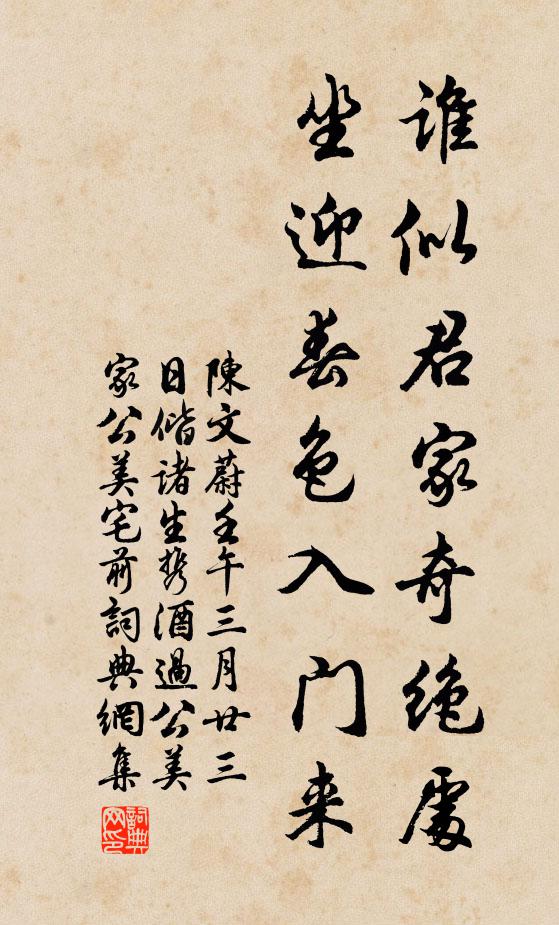 谁似君家奇绝處
坐迎春色入门来
陳文蔚壬午三月廿三
日偕諸生携酒過公美
家公美宅前詞典網集
詞典网印